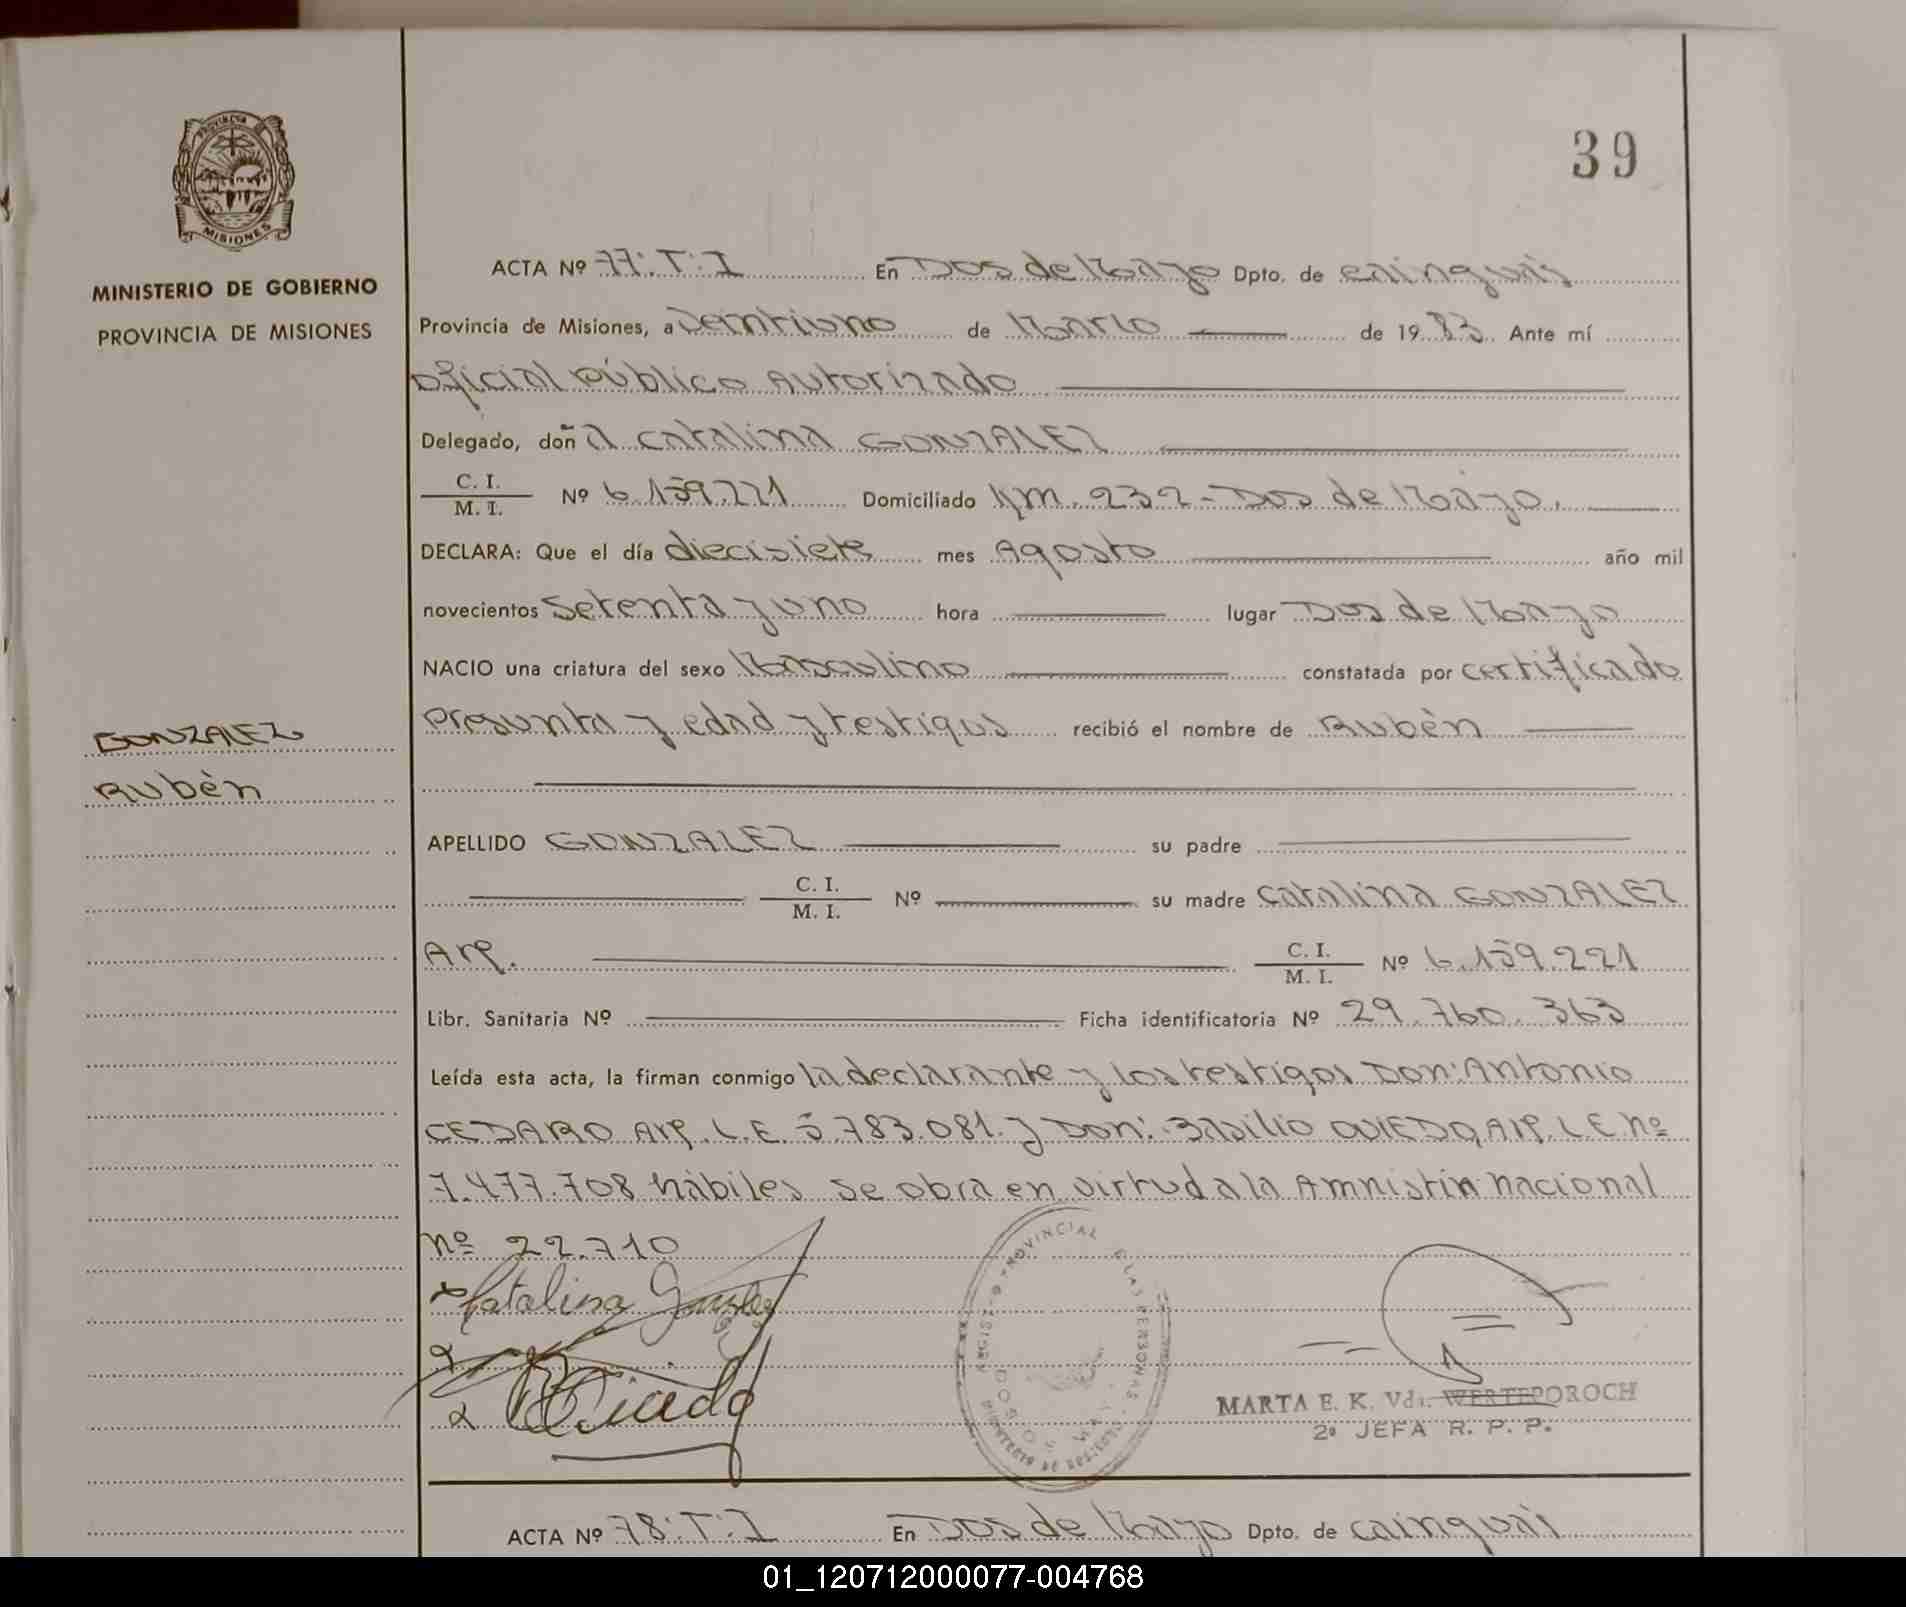 PROVINCIA DE
MISIONES
MINISTERIO DE GOBIERNO
PROVINCIA DE MISIONES
39
ACTA Nº 77:T:I En Dos de Mayo Dpto. de cainguás
Provincia de Misiones, a veintiuno de Marzo de 1983 Ante mí
oficial público Autorizado
Delegado, doña catalina GONZALEZ
C. I.
M. I. Nº 6.159.221 Domiciliado km. 232-Dos de Mayo.
DECLARA: Que el día diecisiete mes Agosto año mil
novecientos setenta y uno hora lugar Dos de Mayo
NACIO una criatura del sexo Masculino constatada por certificado
presunta y edad y testigos recibió el nombre de Rubèn
GONZALEZ
Rubèn
APELLIDO GONZALEZ su padre
C. I.
M. I. Nº su madre catalina GONZALEZ
Arg. C. I.
M. I. Nº 6.159.221
Libr. Sanitaria Nº Ficha identificatoria Nº 29.760.363
Leída esta acta, la firman conmigo la declarante y los testigos Don: Antonio
CEDARO Arg. L.E. 5.783.081. y Don: Basilio OVIEDO, Arg. L.E. nº
7.477.708 hábiles se obra en virtud a la Amnistía nacional
nº 22.710
Catalina González
Oviedo
PROVINCIAL DE LAS PERSONAS
DOS DE MAYO
MARTA E. K. Vda. WERTEPOROCH
2º JEFA R. P. P.
ACTA Nº 78:T:I En Dos de Mayo Dpto. de cainguás
01_120712000077-004768